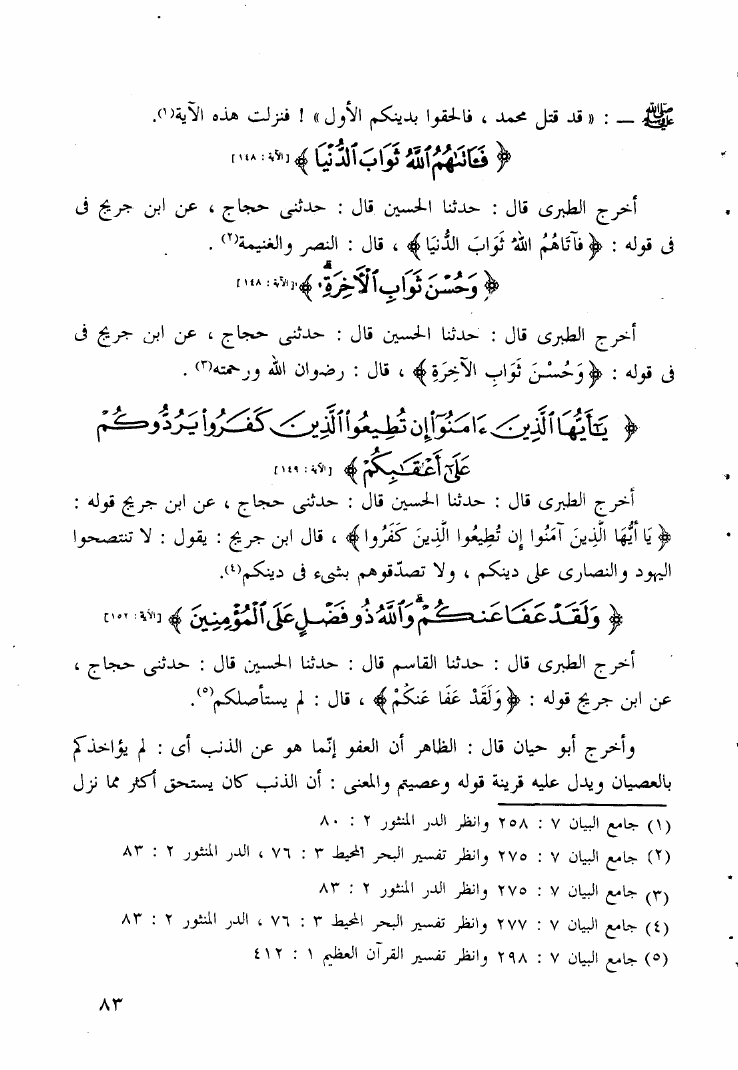 ﷺ ــ : « قد قتل محمد ، فالحقوا بدينكم الأول » ! فنزلت هذه الآية(١).
﴿ فَـَٔاتَىٰهُمُ ٱللَّهُ ثَوَابَ ٱلدُّنْيَا ﴾ [الآية : ١٤٨]
أخرج الطبرى قال : حدثنا الحسين قال : حدثنى حجاج ، عن ابن جريج فى
فى قوله : ﴿ فَآتَاهُمُ اللهُ ثَوَابَ الدُّنيَا ﴾ ، قال : النصر والغنيمة(٢) .
﴿ وَحُسْنَ ثَوَابِ ٱلْـَٔاخِرَةِ ﴾ [الآية : ١٤٨]
أخرج الطبرى قال : حدثنا الحسين قال : حدثنى حجاج ، عن ابن جريج فى
فى قوله : ﴿ وَحُسْنَ ثَوَابِ الآخِرَةِ ﴾ ، قال : رضوان الله ورحمته(٣) .
﴿ يَـٰٓأَيُّهَا ٱلَّذِينَ ءَامَنُوٓا۟ إِن تُطِيعُوا۟ ٱلَّذِينَ كَفَرُوا۟ يَرُدُّوكُمْ
عَلَىٰٓ أَعْقَـٰبِكُمْ ﴾ [الآية : ١٤٩]
أخرج الطبرى قال : حدثنا الحسين قال : حدثنى حجاج ، عن ابن جريج قوله :
﴿ يَا أَيُّهَا الَّذِينَ آمَنُوا إِن تُطِيعُوا الَّذِينَ كَفَرُوا ﴾ ، قال ابن جريج : يقول : لا تنتصحوا
اليهود والنصارى على دينكم ، ولا تصدّقوهم بشىء فى دينكم(٤).
﴿ وَلَقَدْ عَفَا عَنكُمْ ۗ وَٱللَّهُ ذُو فَضْلٍ عَلَى ٱلْمُؤْمِنِينَ ﴾ [الآية : ١٥٢]
أخرج الطبرى قال : حدثنا القاسم قال : حدثنا الحسين قال : حدثنى حجاج ،
عن ابن جريج قوله : ﴿ وَلَقَدْ عَفَا عَنكُمْ ﴾ ، قال : لم يستأصلكم(٥).
وأخرج أبو حيان قال : الظاهر أن العفو إنّما هو عن الذنب أى : لم يؤاخذكم
بالعصيان ويدل عليه قرينة قوله وعصيتم والمعنى : أن الذنب كان يستحق أكثر مما نزل
(١) جامع البيان ٧ : ٢٥٨ وانظر الدر المنثور ٢ : ٨٠
(٢) جامع البيان ٧ : ٢٧٥ وانظر تفسير البحر المحيط ٣ : ٧٦ ، الدر المنثور ٢ : ٨٣
(٣) جامع البيان ٧ : ٢٧٥ وانظر الدر المنثور ٢ : ٨٣
(٤) جامع البيان ٧ : ٢٧٧ وانظر تفسير البحر المحيط ٣ : ٧٦ ، الدر المنثور ٢ : ٨٣
(٥) جامع البيان ٧ : ٢٩٨ وانظر تفسير القرآن العظيم ١ : ٤١٢
٨٣